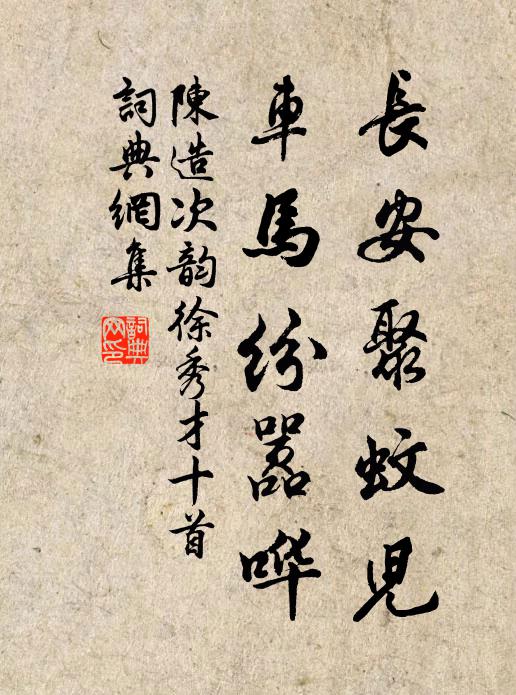 長安聚蚊児
車馬紛嚣哗
陳造次韵徐秀才十首
詞典網集
詞典
网印